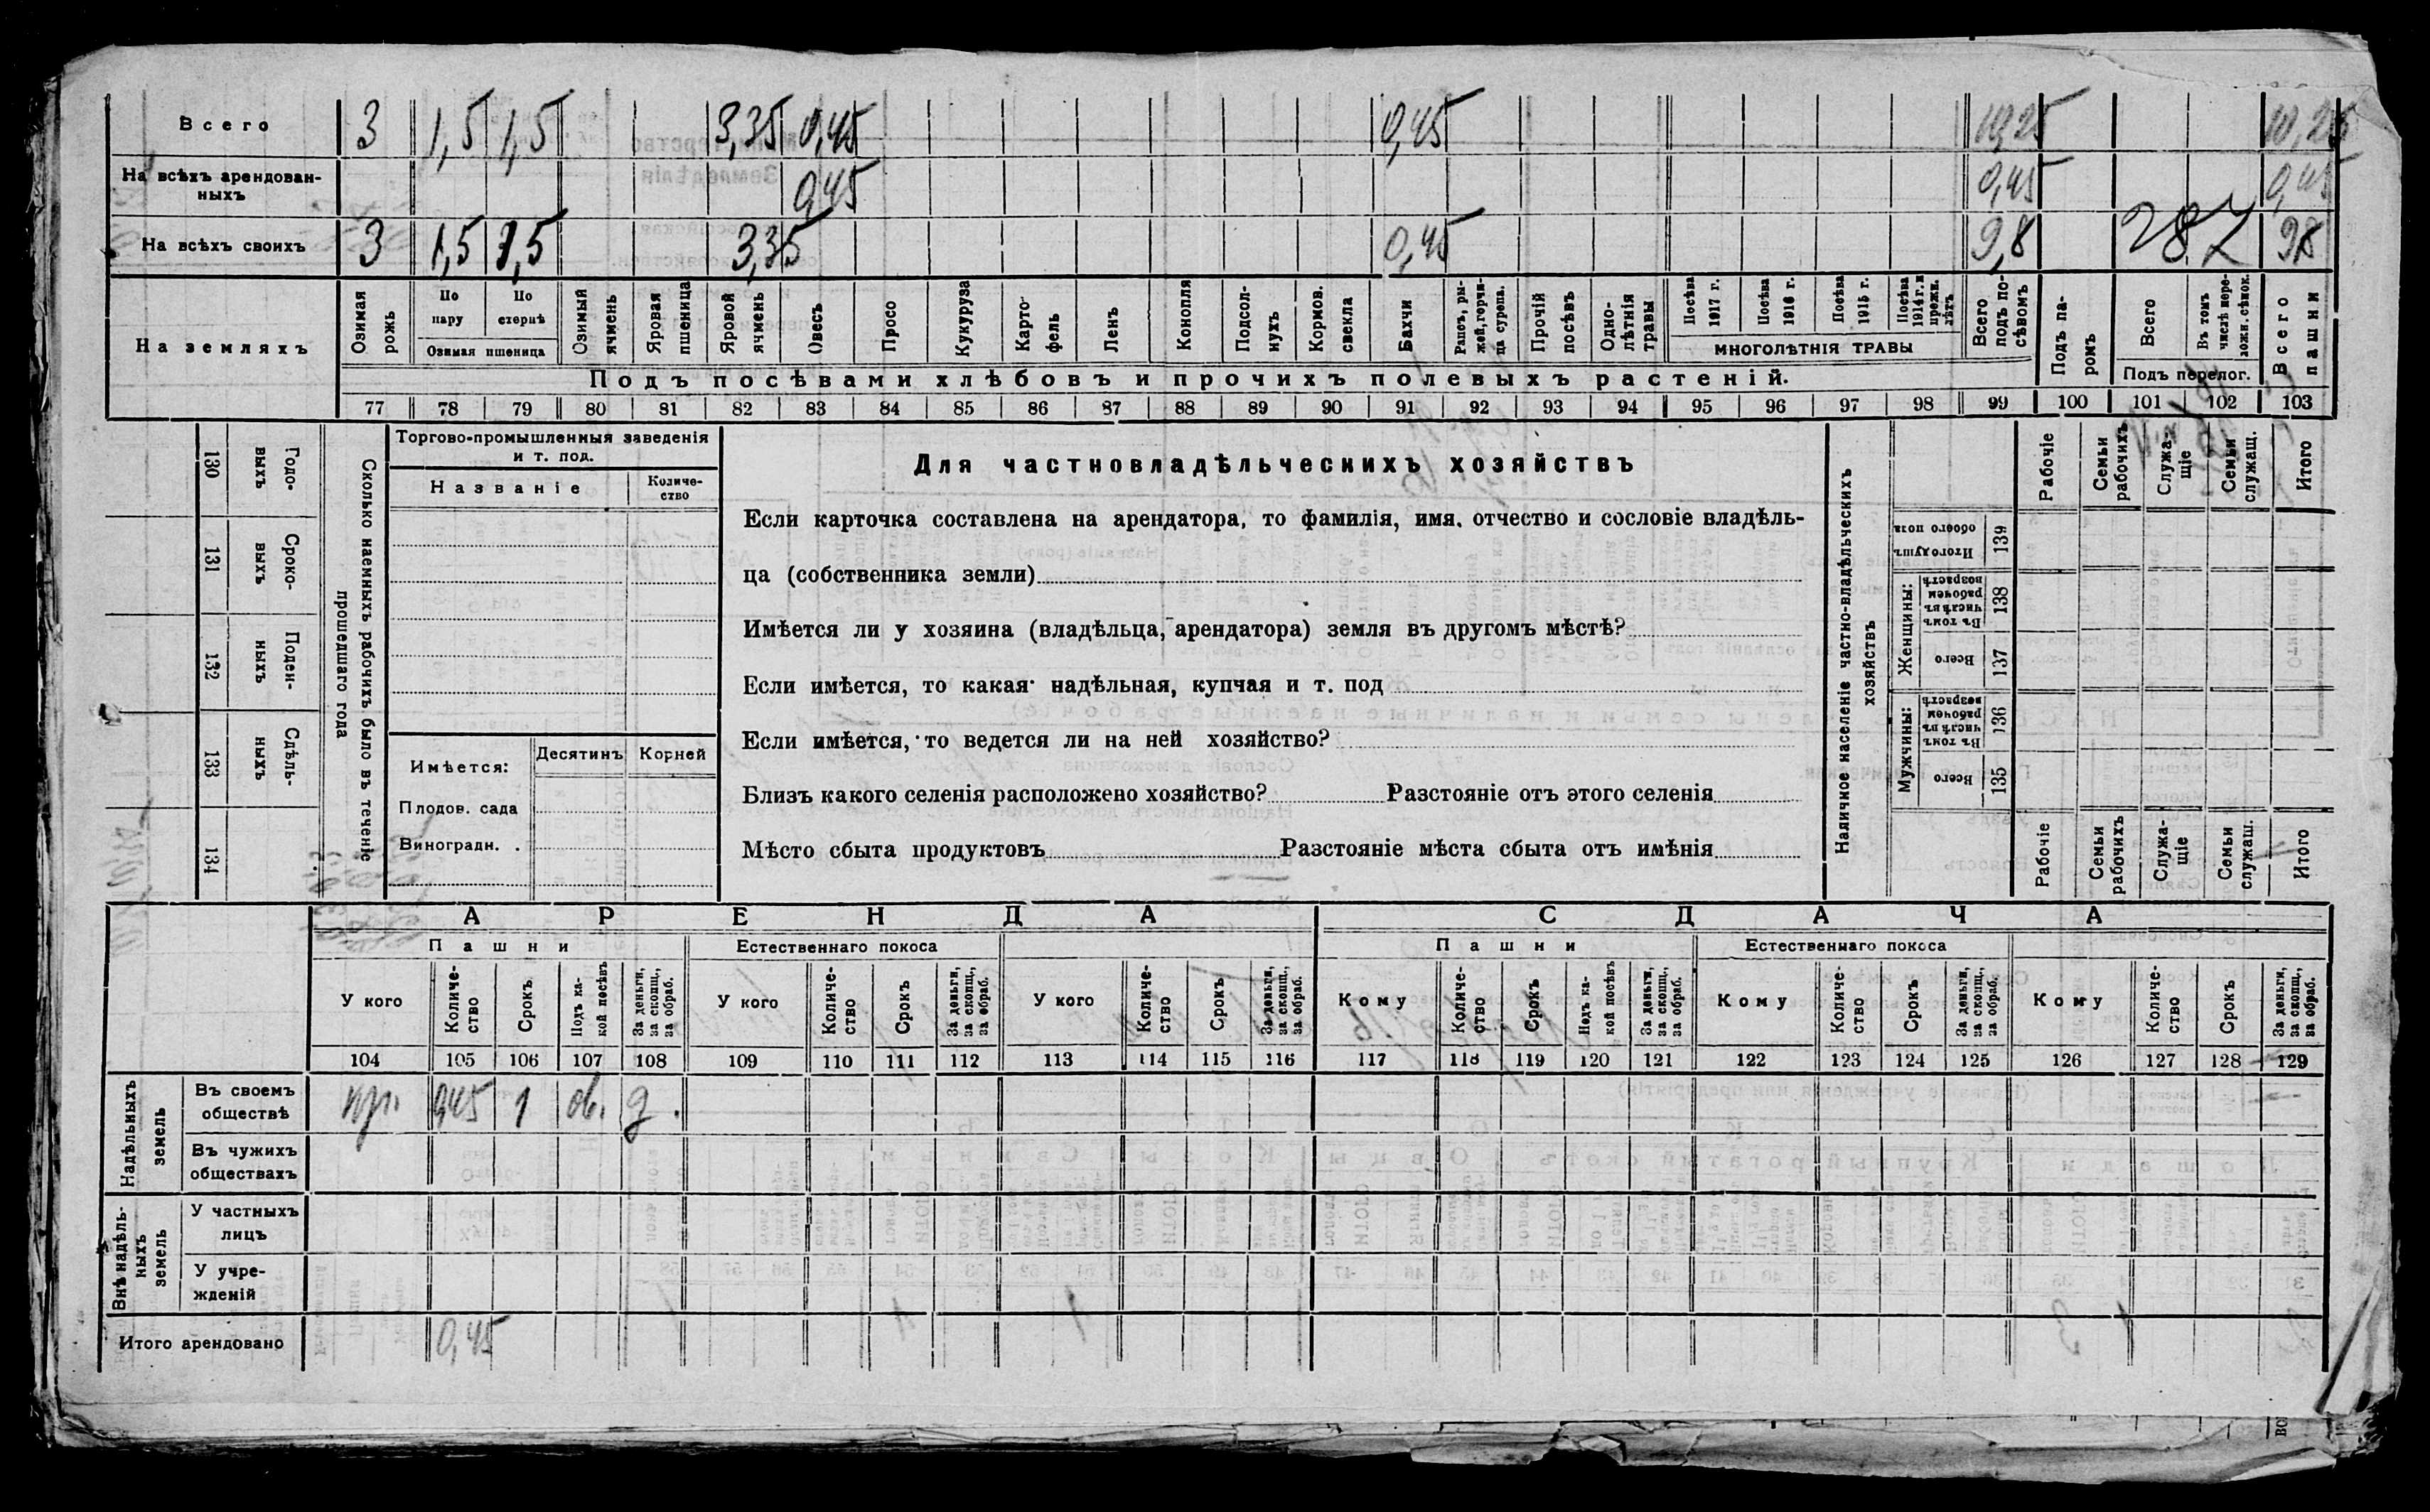 Всего 3 1,5 1,5 3,35 0,45 0,45 10,25 10,25
На всѣхъ арендован-
ныхъ 0,45 0,45 0,45
На всѣхъ своихъ 3 1,5 1,5 3,35 0,45 9,8 287 9,8
На земляхъ
Озимая рожь
По пару
По стернѣ
Озимая пшеница
Озимый ячмень
Яровая пшеница
Яровой ячмень
Овесъ
Просо
Кукуруза
Карто-
фель
Ленъ
Конопля
Подсол-
нухъ
Кормов. свекла
Бахчи
Рапсъ, ры-
жей, горчи-
ца сурепа.
Прочій посѣвъ
Одно-
лѣтнія травы
Посѣва 1917 г.
Посѣва 1916 г.
Посѣва 1915 г.
Посѣва 1914 г. и прежн. лѣтъ
МНОГОЛѢТНІЯ ТРАВЫ
Всего подъ по-
сѣвомъ
Подъ па-
ромъ
Всего
Въ томъ числѣ пере-
ложн. сѣнок.
Подъ перелог.
Всего пашни
Подъ посѣвами хлѣбовъ и прочихъ полевыхъ растеній.
77 78 79 80 81 82 83 84 85 86 87 88 89 90 91 92 93 94 95 96 97 98 99 100 101 102 103
130 Годо-
выхъ
131 Сроко-
выхъ
132 Поден-
ныхъ
133 Сдѣль-
ныхъ
134
Сколько наемныхъ рабочихъ было въ теченіе
прошедшаго года
Торгово-промышленныя заведенія
и т. под.
Названіе
Количе-
ство
Имѣется:
Десятинъ
Корней
Плодов. сада
Виноградн. .
Для частновладѣльческихъ хозяйствъ
Если карточка составлена на арендатора, то фамилія, имя, отчество и сословіе владѣль-
ца (собственника земли)
Имѣется ли у хозяина (владѣльца, арендатора) земля въ другомъ мѣстѣ?
Если имѣется, то какая надѣльная, купчая и т. под
Если имѣется, то ведется ли на ней хозяйство?
Близъ какого селенія расположено хозяйство? Разстояніе отъ этого селенія
Мѣсто сбыта продуктовъ Разстояніе мѣста сбыта отъ имѣнія
Наличное населеніе частно-владѣльческихъ
хозяйствъ
Рабочіе
Семьи рабочихъ
Служа-
щіе
Семьи служащ.
Итого
Итого душъ обоего пола 139
Женщины:
Въ томъ числѣ въ рабочемъ возрастѣ 138
Всего 137
Мужчины:
Въ томъ числѣ въ рабочемъ возрастѣ 136
Всего 135
Рабочіе
Семьи рабочихъ
Служа-
щіе
Семьи служащ.
Итого
АРЕНДА
СДАЧА
Пашни
Естественнаго покоса
Пашни
Естественнаго покоса
У кого
Количе-
ство
Срокъ
Подъ ка-
кой посѣвъ
За деньги, за скопщ., за обраб.
У кого
Количе-
ство
Срокъ
За деньги, за скопщ., за обраб.
У кого
Количе-
ство
Срокъ
За деньги, за скопщ., за обраб.
Кому
Количе-
ство
Срокъ
Подъ ка-
кой посѣвъ
За деньги, за скопщ., за обраб.
Кому
Количе-
ство
Срокъ
За деньги, за скопщ., за обраб.
Кому
Количе-
ство
Срокъ
За деньги, за скопщ., за обраб.
104 105 106 107 108 109 110 111 112 113 114 115 116 117 118 119 120 121 122 123 124 125 126 127 128 129
Надѣльныхъ
земель
Въ своемъ
обществѣ кр. 0,45 1 ов. д.
Въ чужихъ
обществахъ
Внѣ надѣль-
ныхъ
земель
У частныхъ
лицъ
У учре-
жденій
Итого арендовано 0,45